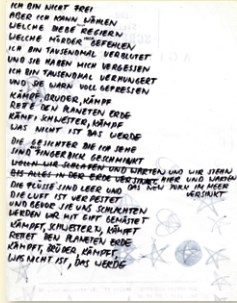 ICH BIN NICHT FREI
ABER ICH KANN WÄHLEN
WELCHE DIEBE REGIEREN
WELCHE MÖRDER BEFEHLEN
ICH BIN TAUSENDMAL VERBLUTET
UND SIE HABEN MICH VERGESSEN
ICH BIN TAUSENDMAL VERHUNGERT
UND SIE WARN VOLL GEFRESSEN
KÄMPF BRUDER, KÄMPF
RETTE DEN PLANETEN ERDE
KÄMPF SCHWESTER, KÄMPF
WAS NICHT IST DAS WERDE
DIE GESICHTER DIE ICH SEHE
SIND FINGERDICK GESCHMINKT
UND WARTEN UND WIR STEHN
BIS ALLES IN DER ERDE VERSINKT HIER UND WARTEN
DIE FLÜSSE SIND LEER UND DAS IM MEER
DIE LUFT IST VERPESTET VERSINKT
UND BEVOR SIE UNS SCHLACHTEN
WERDEN WIR MIT GIFT GEMÄSTET
KÄMPFT, SCHWESTERN, KÄMPFT
RETTET DEN PLANETEN ERDE
KÄMPFT, BRÜDER, KÄMPFT,
WAS NICHT IST, DAS WERDE